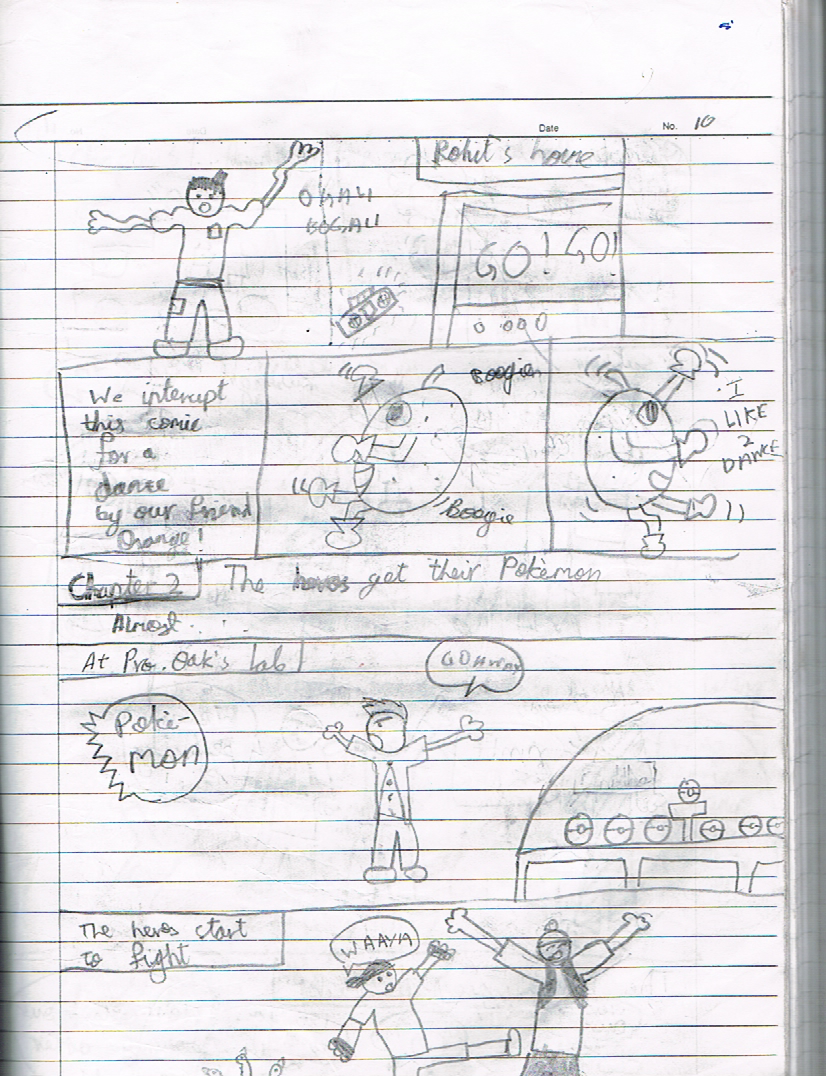 Date
No. 10
Rohit's house
GO! GO!
We interupt
this comic
for a
dance
by our friend
Orange!
Boogie
Boogie
I
LIKE
2
DANCE
Chapter 2
The heros get their Pokemon
Almost . . .
At Pro. Oak's lab
GO AWAY
Poke-
mon
The heros start
to fight
WAAYA